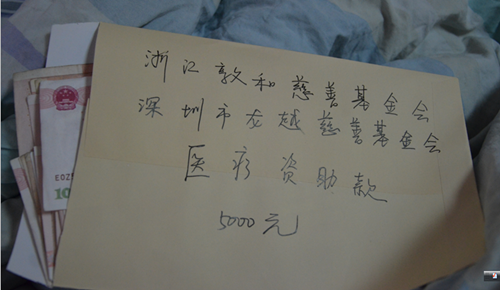 浙江敦和慈善基金会
深圳市龙越慈善基金会
医疗资助款
5000元
E0Z
10